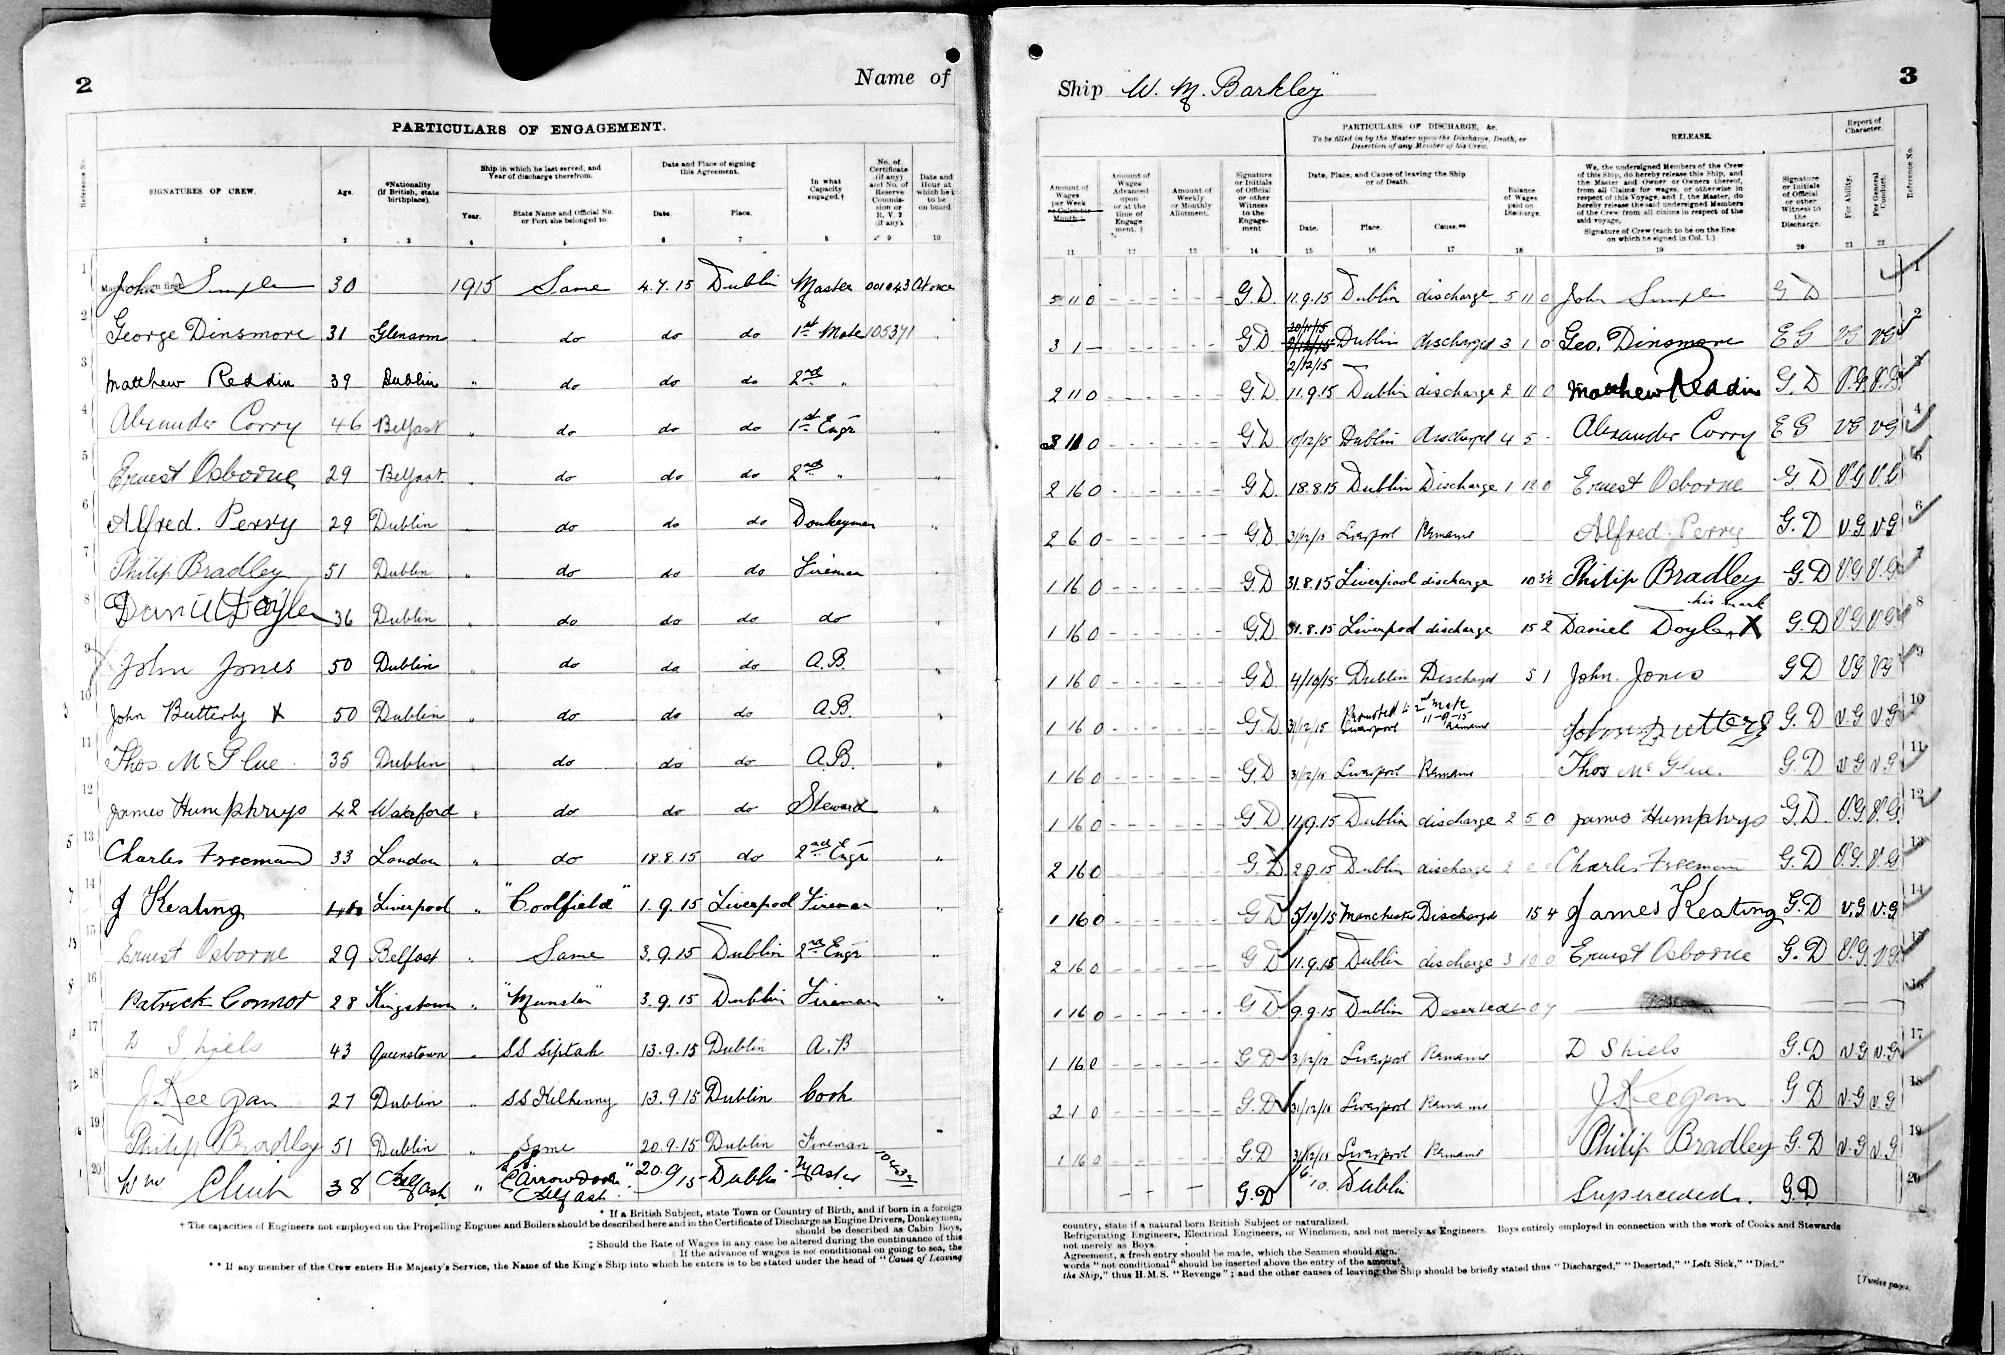 2
Name of
PARTICULARS OF ENGAGEMENT.
Reference No.
SIGNATURES OF CREW.
Age.
*Nationality (If British, state birthplace).
Ship in which he last served, and Year of discharge therefrom.
Year.
State Name and Official No. or Port she belonged to.
Date and Place of signing this Agreement.
Date.
Place.
In what Capacity engaged.†
No. of Certificate (if any) and No. of Reserve Commission or R.V.2 (if any).
Date and Hour at which he is to be on board.
1 2 3 4 5 6 7 8 9 10
1 John 30 1915 Same 4.7.15 Dublin Master 001043 At once
2 George Dinsmore 31 Glenarm " do do do 1st Mate 105371
3 Matthew Reddin 39 Dublin " do do do 2nd "
4 Alexander Corry 46 Belfast " do do do 1st Engr "
5 Ernest Osborne 29 Belfast " do do do 2nd " "
6 Alfred. Perry 29 Dublin do do do Donkeyman "
7 Philip Bradley 51 Dublin " do do do Fireman "
8 Daniel Doyle 36 Dublin " do do do do "
9 John Jones 50 Dublin " do do do A.B. "
10 John Butterly X 50 Dublin " do do do A.B. "
11 Thos. McGlue 35 Dublin " do do do A.B. "
12 James Humphrys 42 Waterford " do do do Steward "
13 Charles Freeman 33 London " do 18.8.15 do 2nd Engr "
14 J Keating Liverpool " "Coolfield" 1.9.15 Liverpool Fireman "
15 Ernest Osborne 29 Belfast " Same 3.9.15 Dublin 2nd Engr "
16 Patrick Connor 28 Kingstown " "Munster" 3.9.15 Dublin Fireman "
17 D Shiels 43 Queenstown " SS Siptah 13.9.15 Dublin A.B
18 J Keegan 27 Dublin " SS Kilkenny 13.9.15 Dublin Cook
19 Philip Bradley 51 Dublin " Same 20.9.15 Dublin Fireman "
20 Wm 38 Belfast " SS "Carrowdore" Belfast 20.9.15 Dublin Master
* If a British Subject, state Town or Country of Birth, and if born in a foreign
† The capacities of Engineers not employed on the Propelling Engines and Boilers should be described here and in the Certificate of Discharge as Engine Drivers, Donkeymen,
should be described as Cabin Boys,
‡ Should the Rate of Wages in any case be altered during the continuance of this
If the advance of wages is not conditional on going to sea, the
** If any member of the Crew enters His Majesty's Service, the Name of the King's Ship into which he enters is to be stated under the head of "Cause of Leaving
Ship "W. M. Barkley"
3
PARTICULARS OF DISCHARGE, &c.
To be filled in by the Master upon the Discharge, Death, or Desertion of any Member of his Crew.
RELEASE.
Report of Character.
Amount of Wages per Week or Calendar Month.
Amount of Wages Advanced upon or at the time of Engagement.
Amount of Weekly or Monthly Allotment.
Signature or Initials of Official or other Witness to the Engagement
Date, Place, and Cause of leaving the Ship or of Death.
Date.
Place.
Cause.**
Balance of Wages paid on Discharge.
We, the undersigned Members of the Crew of this Ship, do hereby release this Ship, and the Master and Owner or Owners thereof, from all Claims for wages, or otherwise in respect of this Voyage, and I, the Master, do hereby release the said undersigned Members of the Crew from all claims in respect of the said voyage.
Signature of Crew (each to be on the line on which he signed in Col. 1.)
Signature or Initials of Official or other Witness to the Discharge.
For Ability.
For General Conduct.
Reference No.
11 12 13 14 15 16 17 18 19 20 21 22
5 11 0 G.D. 11.9.15 Dublin discharge 5 11 0 John G D 1
3 1 - G D 2/12/15 Dublin discharged 3 1 0 Geo. Dinsmore E G VG VG 2
2 11 0 G D. 11.9.15 Dublin discharge 2 11 0 Matthew Reddin G. D V.G V.G 3
3 11 0 G D 10/12/15 Dublin discharged 4 5 - Alexander Corry E G VG VG 4
2 16 0 G D. 18.8.15 Dublin Discharge 1 12 0 Ernest Osborne G D V.G V.G 5
2 6 0 G.D. 31/12/15 Liverpool Remains Alfred. Perry G. D V.G V.G 6
1 16 0 G.D 31.8.15 Liverpool discharge Philip Bradley G.D V.G V.G 7
1 16 0 G.D 31.8.15 Liverpool discharge 15 2 Daniel Doyle his mark X G.D V G V G 8
1 16 0 G D. 4/10/15 Dublin Discharged 5 1 John. Jones G D VG VG 9
1 16 0 G.D. 31/12/15 Promoted to 2nd mate 11-9-15 Liverpool Remains John Butterly G. D V.G V.G 10
1 16 0 G.D 31/12/15 Liverpool Remains Thos McGlue. G. D V G V G 11
1 16 0 G D 11.9.15 Dublin discharge 2 5 0 James Humphrys G. D. V.G V.G. 12
2 16 0 G. D. 2.9.15 Dublin discharge Charles Freeman G. D V.G. V.G 13
1 16 0 G D 5/10/15 Manchester Discharged 15 4 James Keating G.D V.G V.G. 14
2 16 0 G D 11.9.15 Dublin discharge 3 10 0 Ernest Osborne G. D V.G. V.G. 15
1 16 0 G D 9.9.15 Dublin Deserted 16
1 16 0 G D 31/12/15 Liverpool Remains D Shiels G.D V.G V.G 17
2 1 0 G.D 31/12/15 Liverpool Remains J Keegan G D V.G V G 18
1 16 0 G.D 31/12/15 Liverpool Remains Philip Bradley G. D V.G V.G 19
G.D Dublin Superceded. G.D 20
country, state if a natural born British Subject or naturalized.
Refrigerating Engineers, Electrical Engineers, or Winchmen, and not merely as Engineers. Boys entirely employed in connection with the work of Cooks and Stewards
not merely as Boys.
Agreement, a fresh entry should be made, which the Seamen should sign.
words "not conditional" should be inserted above the entry of the amount.
the Ship," thus H.M.S. "Revenge"; and the other causes of leaving the Ship should be briefly stated thus "Discharged," "Deserted," "Left Sick," "Died."
[Twelve pages.